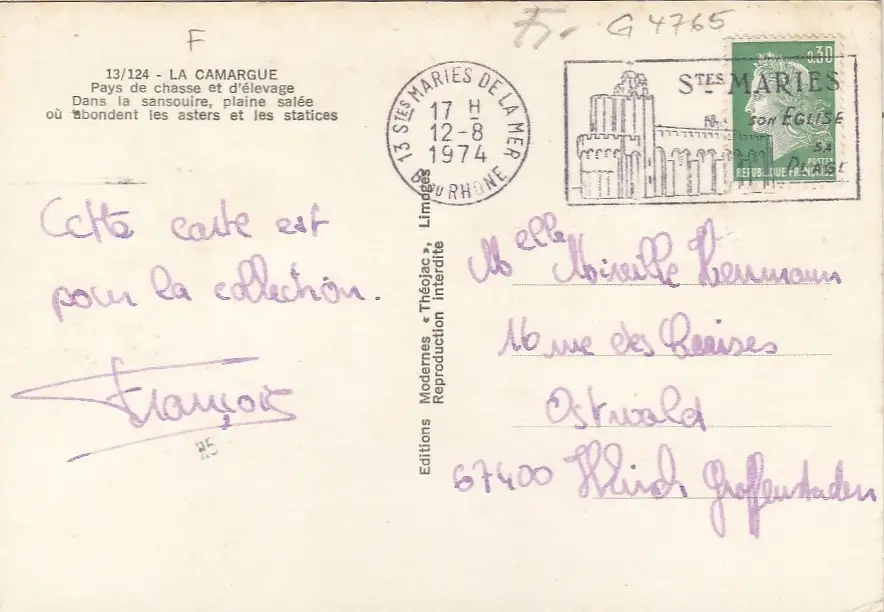 F
G 4765
13/124 - LA CAMARGUE
Pays de chasse et d'élevage
Dans la sansouire, plaine salée
où abondent les asters et les statices
13 STES MARIES DE LA MER
17 H
12-8
1974
B. DU RHONE
STES MARIES
SON ÉGLISE
SA
PLAGE
0,30
POSTES
REPUBLIQUE FRANÇAISE
Cette carte est
pour la collection.
François
Editions Modernes « Théojac », Limoges
Reproduction interdite
Melle Mireille Hermann
rue des Cerises
Ostwald
67400 Illkirch Graffenstaden